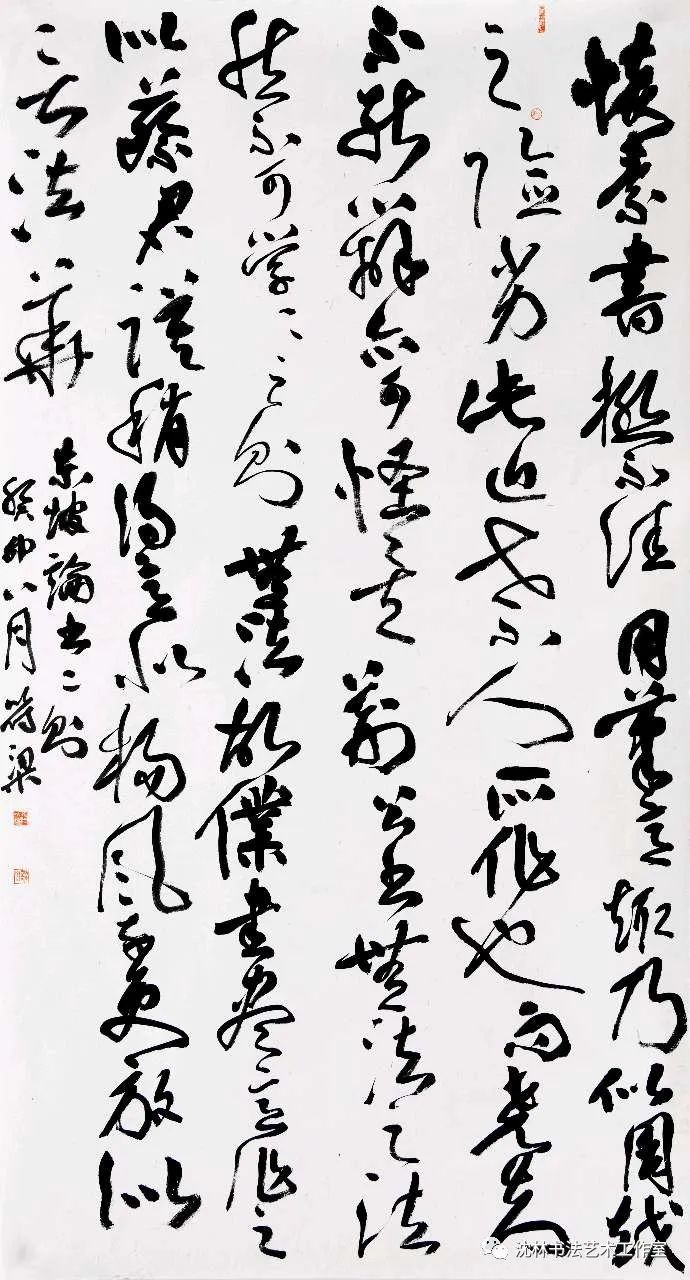 懷素書極不佳用筆意趣乃似周越
之險劣此近世小人所作也而堯夫
不能辯亦可怪矣荊公書無法之法
然不可學〻之則無法故僕書盡意作之
似蔡君謨稍得意似楊風子更放似
言法華
東坡論書二則
癸卯八月
沈林书法艺术工作室